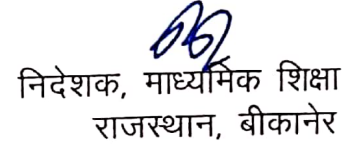 निदेशक, माध्यमिक शिक्षा
राजस्थान, बीकानेर